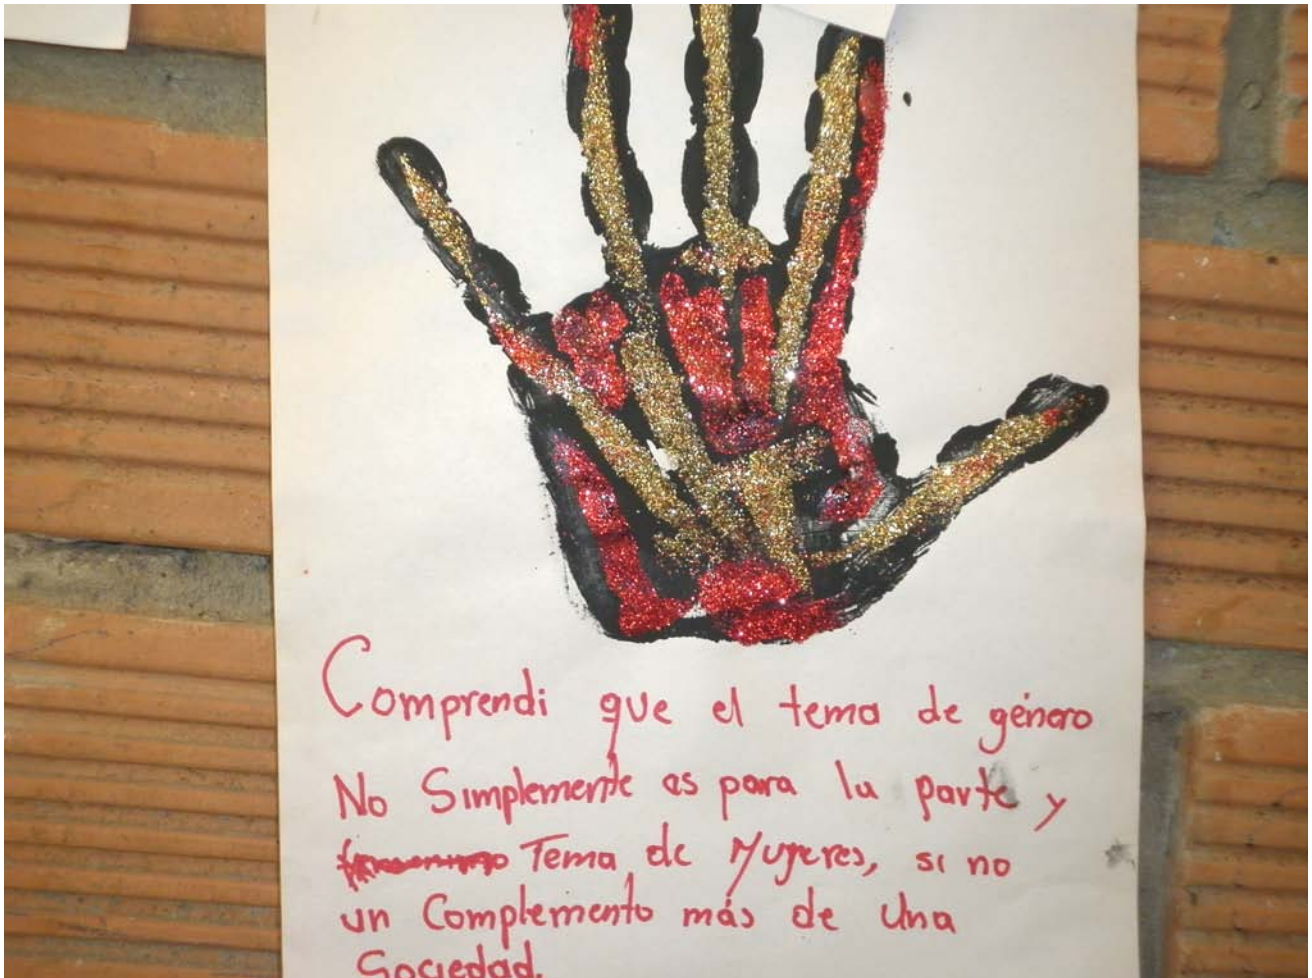 Comprendi que el tema de género
No Simplemente es para la parte y
Tema de Mujeres, si no
un Complemento más de una
Sociedad.